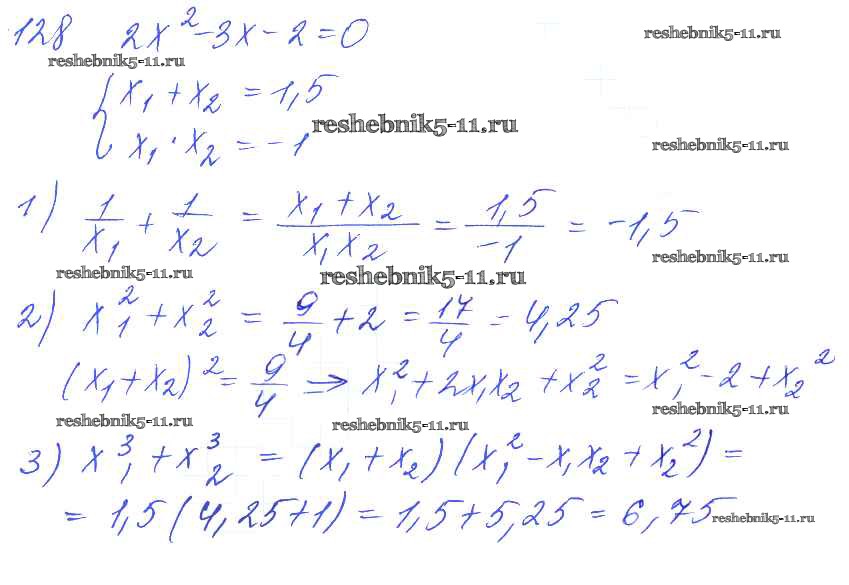 128 2x² - 3x - 2 = 0
reshebnik5-11.ru
reshebnik5-11.ru
{ x₁ + x₂ = 1,5
reshebnik5-11.ru
x₁ · x₂ = -1
reshebnik5-11.ru
1) 1/x₁ + 1/x₂ = (x₁ + x₂)/(x₁x₂) = 1,5/-1 = -1,5
reshebnik5-11.ru
reshebnik5-11.ru
reshebnik5-11.ru
2) x₁² + x₂² = 9/4 + 2 = 17/4 = 4,25
(x₁ + x₂)² = 9/4 => x₁² + 2x₁x₂ + x₂² = x₁² - 2 + x₂²
reshebnik5-11.ru
reshebnik5-11.ru
reshebnik5-11.ru
3) x₁³ + x₂³ = (x₁ + x₂)(x₁² - x₁x₂ + x₂²) =
= 1,5(4,25+1) = 1,5+5,25 = 6,75
reshebnik5-11.ru